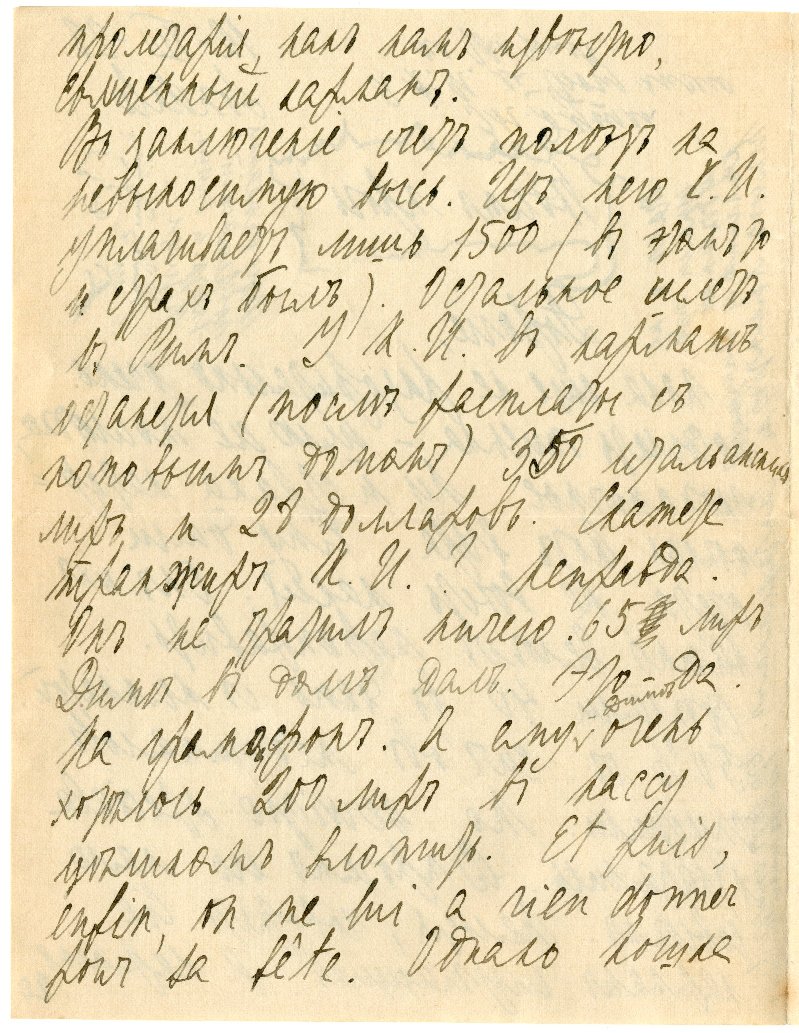 пролетарія, какъ намъ извѣстно,
священный карманъ.
Въ заключеніе счетъ ползъ на
невыносимую высь. Изъ него К. И.
уплачиваетъ лишь 1500 (въ этомъ то
и страхъ былъ). Остальное шлетъ
въ Римъ. У К. И. въ карманѣ
останется (послѣ расплаты съ
поповымъ домомъ) 350 итальянскихъ
лиръ и 28 долларовъ. Скажете
транжиръ К. И.? Неправда.
Онъ не тратилъ ничего. 65 лиръ
Димѣ въ долгъ далъ. Это да.
На грамофонъ. А ему, Димѣ, очень
хотѣлось 200 лиръ въ кассу
цѣликомъ вложить. Et puis,
enfin, on ne lui a rien donner
pour sa fête. Однако кошка